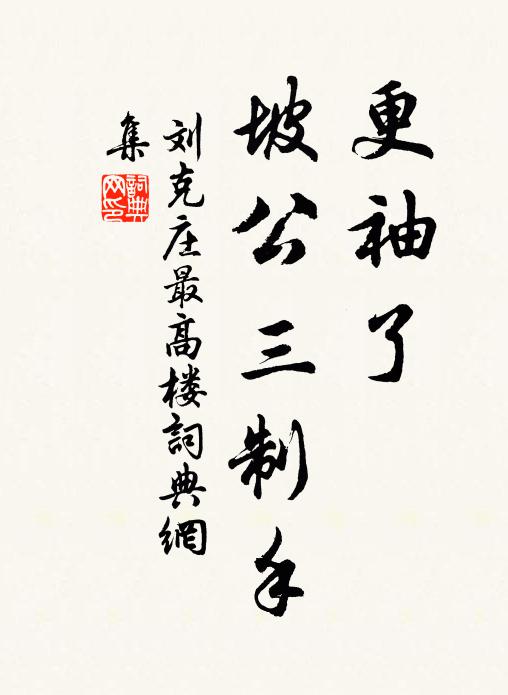 更袖了
坡公三制手
刘克庄最高楼詞典網
集
詞典
网印